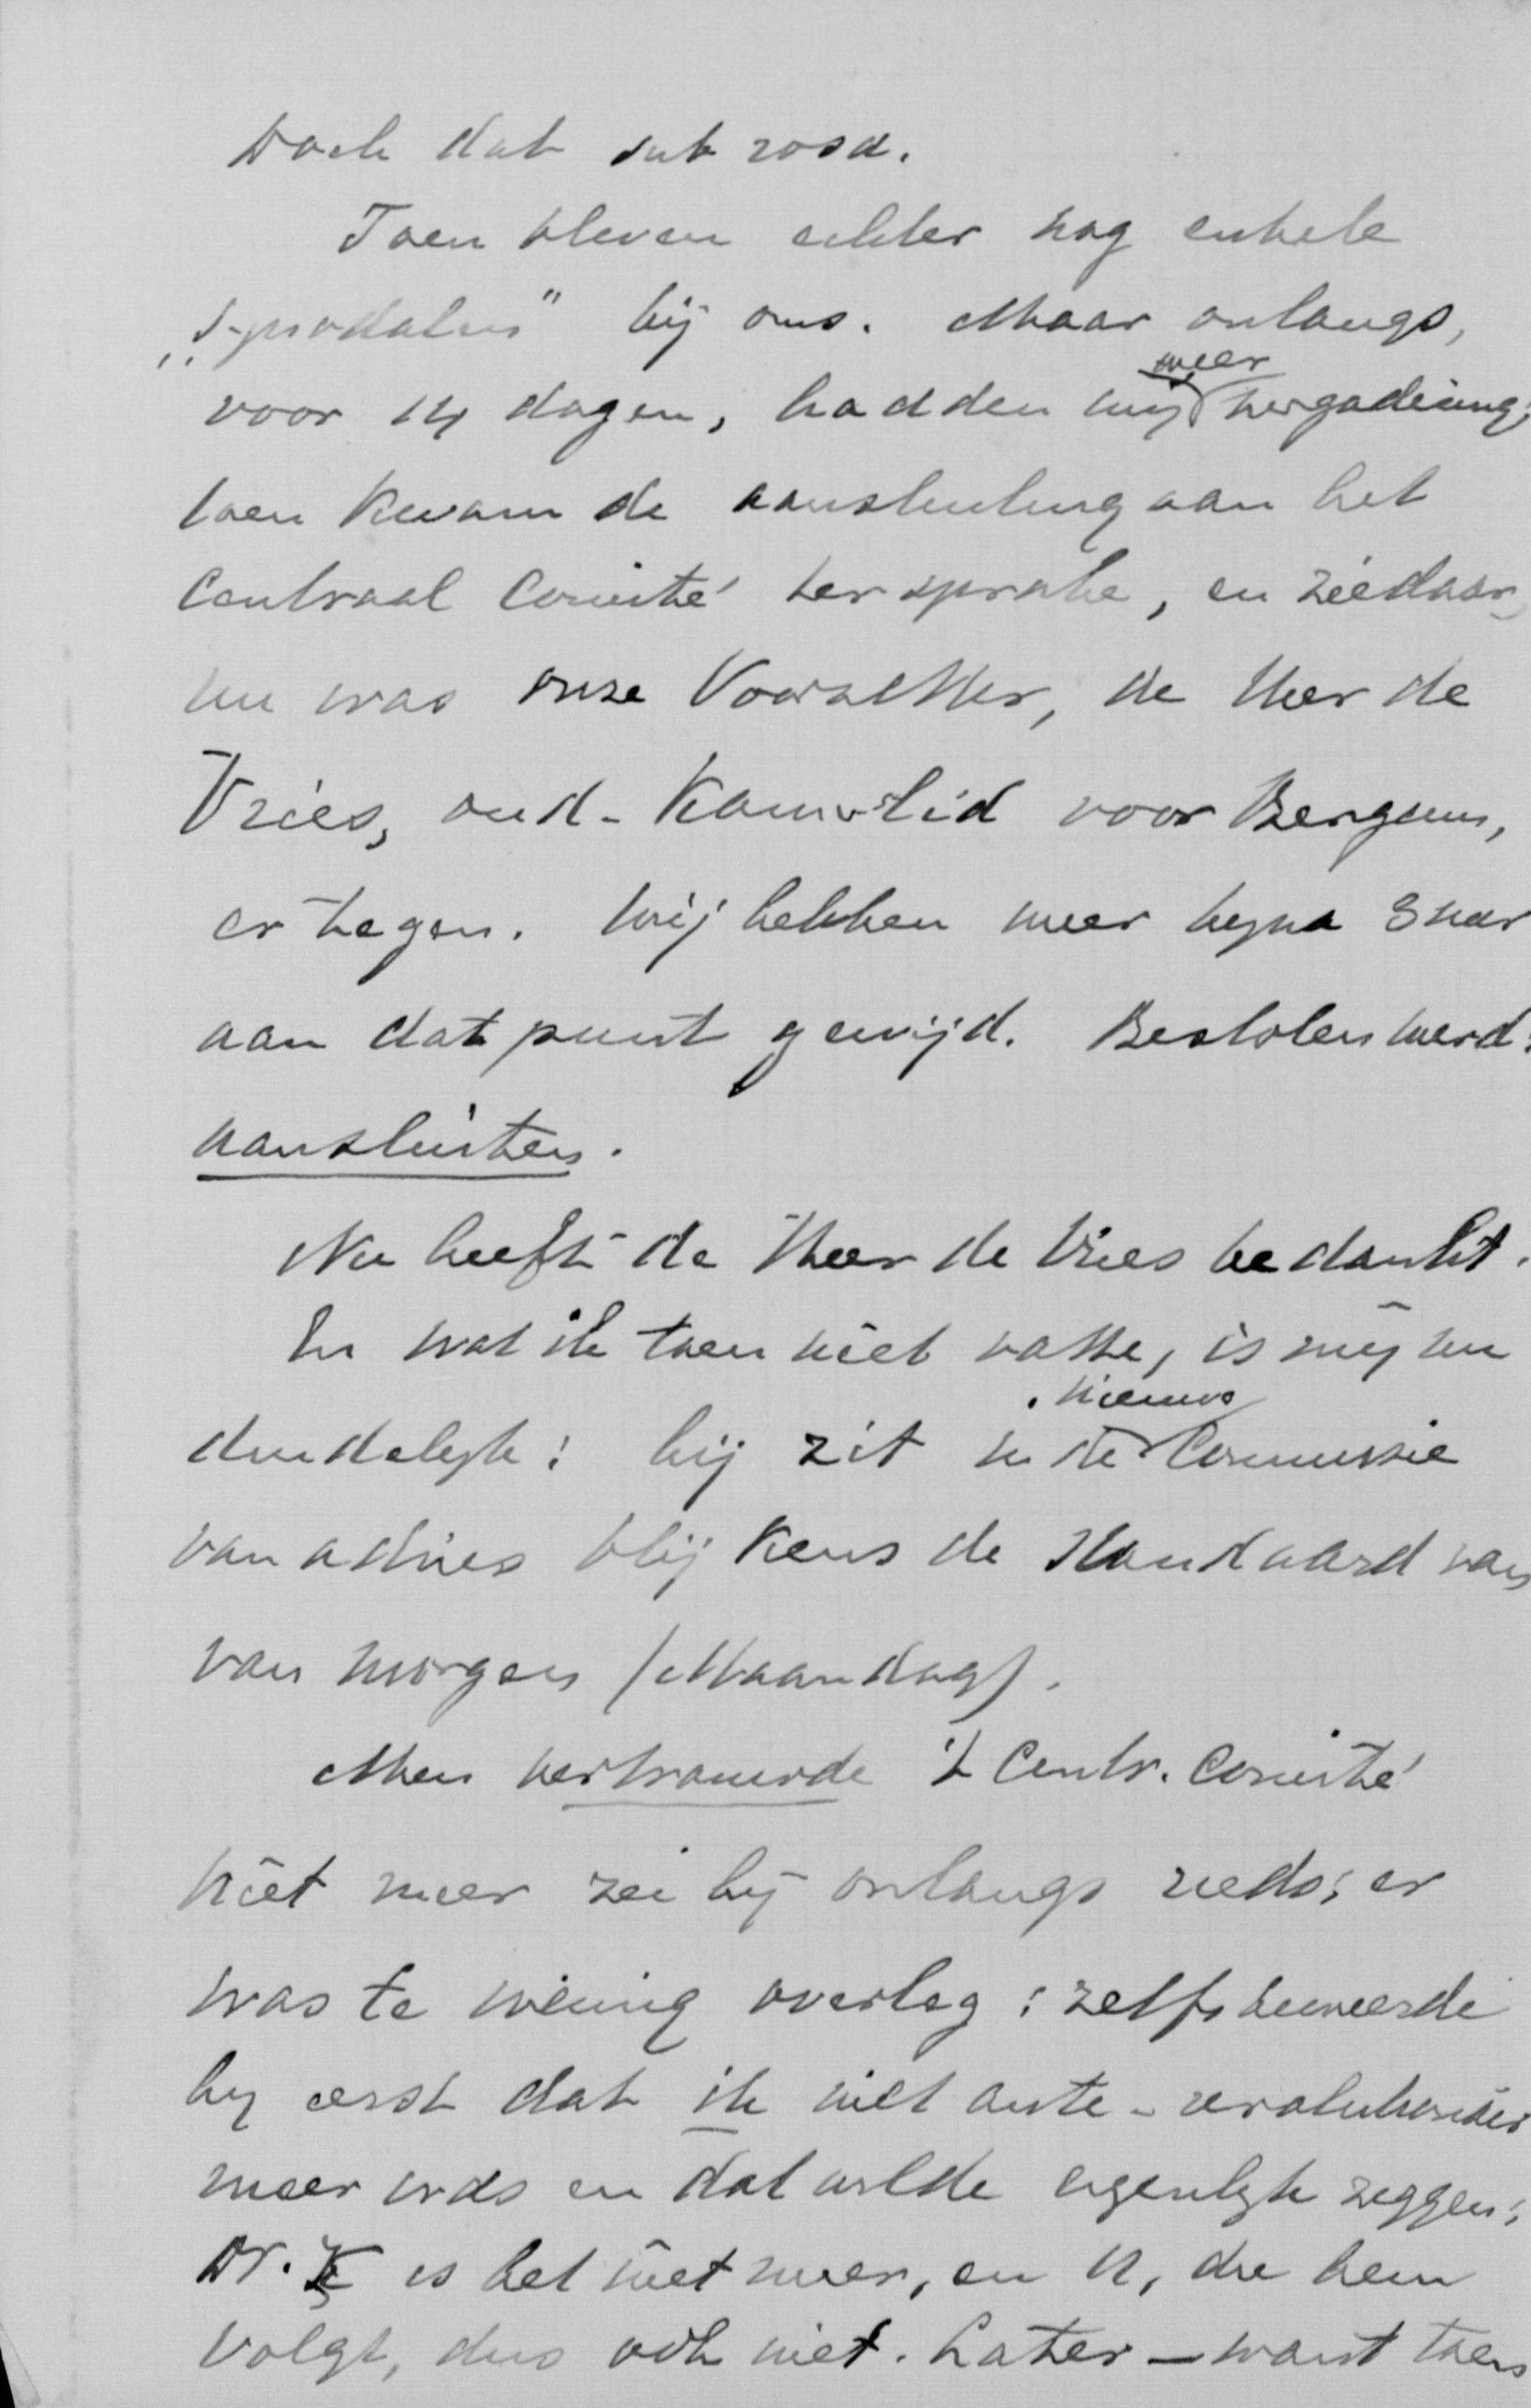 Doch dat sub rosa.
Toen bleven echter nog enkele
„Synodalen" bij ons. Maar onlangs,
voor 14 dagen, hadden wij weer vergadering;
toen kwam de aansluiting aan het
Centraal Comité ter sprake, en ziedaar,
nu was onze Voorzitter, de Heer de
Vries, oud-Kamerlid voor Bergum,
er tegen. Wij hebben weer bijna 3 uur
aan dat punt gewijd. Besloten werd:
aansluiten.
Nu heeft de Heer de Vries bedankt.
En wat ik toen niet vatte, is mij nu
duidelijk: hij zit in de nieuwe Commissie
van advies blijkens de Standaard van
van morgen (Maandag).
Men vertrouwde 't Centr. Comité
niet meer zei hij onlangs reeds; er
was te weinig overleg; zelfs beweerde
hij eerst dat ik niet anti-revolutionair
meer was en dat wilde eigenlijk zeggen:
Dr. K is het niet meer, en U, die hem
volgt, dus ook niet. Later — want toen